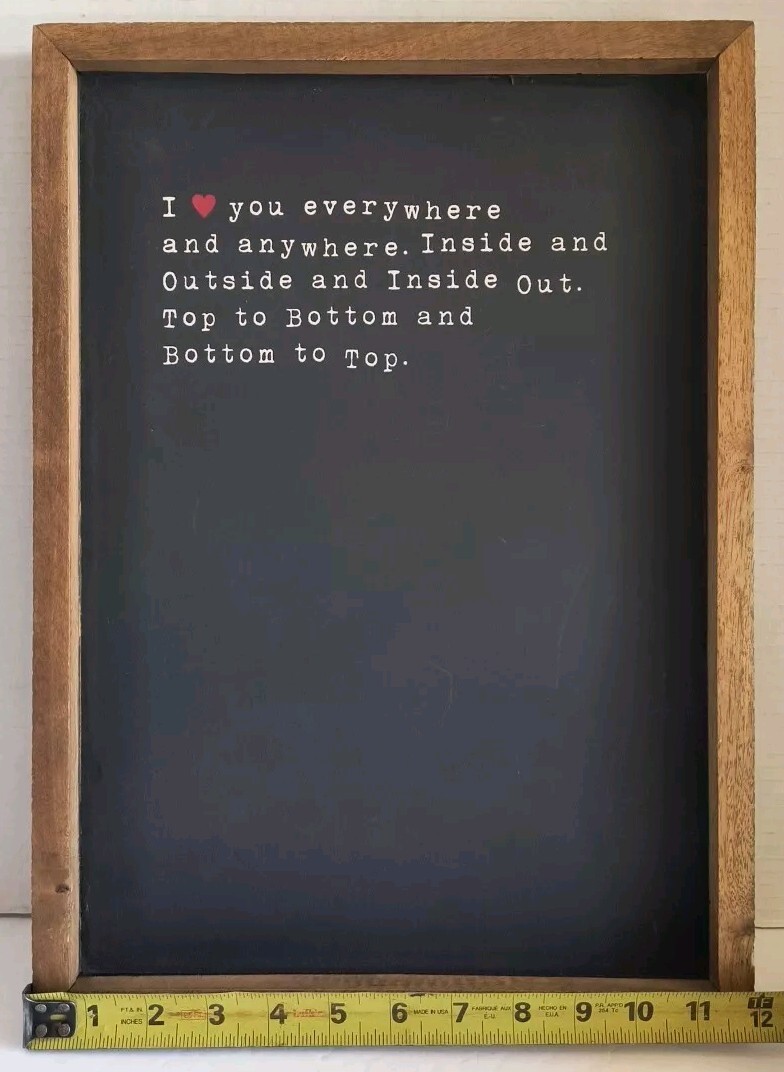 I ♥ you everywhere
and anywhere. Inside and
Outside and Inside Out.
Top to Bottom and
Bottom to Top.
1 FT. & IN INCHES 2 3 4 5 6 MADE IN USA 7 FABRIQUÉ AUX E.-U. 8 HECHO EN E.U.A. 9 10 11 12